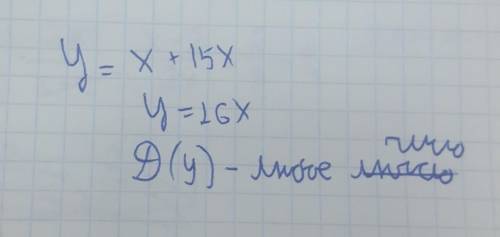 y = x + 15x
y = 16x
D(y) - любое число